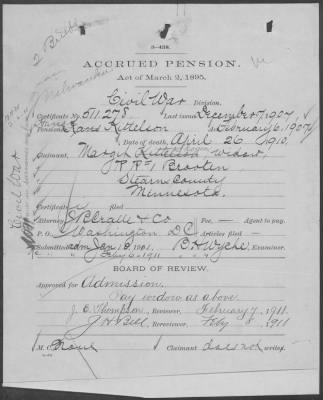 2 Bills
Milwaukee
3-438.
ACCRUED PENSION.
Act of March 2, 1895.
Civil War Division.
Certificate No. 511278 Last issued December 7, 1907,
Pensioner, Hans Kittelson February 6, 1907
Date of death, April 26, 1910,
Claimant, Margit Kittelson widow,
J R R#1 Brooten
Stearn County
Minnesota.
Certificate filed
Attorney, W. Cralle & Co Fee, — Agent to pay.
P. O. Washington D.C. Articles filed —
Submitted adm Jan 1911 B. H. Wyche, Examiner.
Feby 6-1911
BOARD OF REVIEW.
Approved for Admission.
Pay widow as above.
J. C. Thompson, Reviewer, February 7, 1911.
J H Bell, Rereviewer, Feby 8, 1911
M. C. Claimant does not write.
Civil War